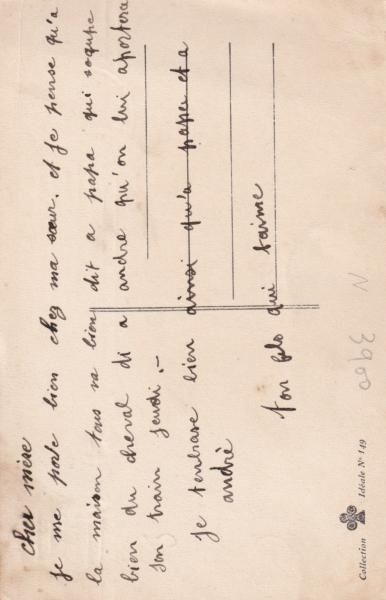 cher mère
je me porte bien chez ma sœur. et je pense qu'a
la maison tous va bien dit a papa qui soqupe
bien du cheval di a andre qu'on lui aportera
son train jeudi.-
je tenbrase bien ainsi qu'a papa et a
andrè
ton fils qui taime
N
3900
Collection Idéale N° 149